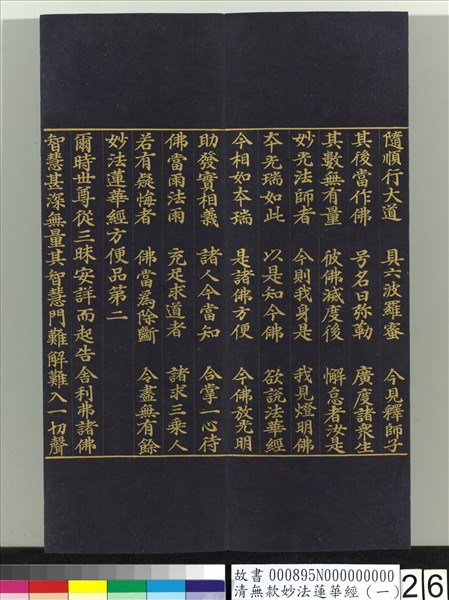 隨順行大道　具六波羅蜜　今見釋師子
其後當作佛　号名曰弥勒　廣度諸衆生
其數無有量　彼佛滅度後　懈怠者汝是
妙光法師者　今則我身是　我見燈明佛
夲光瑞如此　以是知今佛　欲說法華經
今相如夲瑞　是諸佛方便　今佛放光明
助發實相義　諸人今當知　合掌一心待
佛當雨法雨　充足求道者　諸求三乘人
若有疑悔者　佛當為除斷　令盡無有餘
妙法蓮華經方便品第二
爾時世尊從三昧安詳而起告舍利弗諸佛
智慧甚深無量其智慧門難解難入一切聲
故書 000895N000000000
清無款妙法蓮華經(一)
26